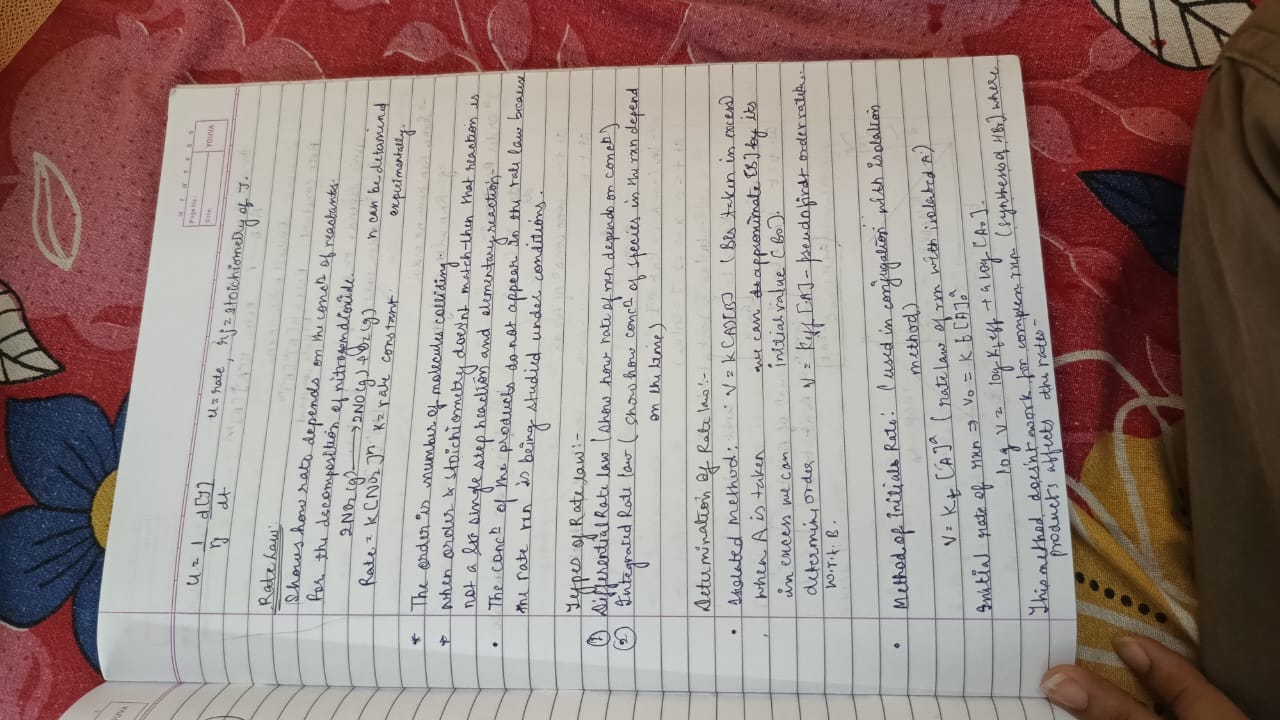 Page No.
Date:
YOUVA
u = 1/rj d[J]/dt   u = rate, rj = stoichiometry of J.
Rate Law:
Shows how rate depends on the concn of reactants.
For the decomposition of nitrogen dioxide.
2NO2(g) → 2NO(g) + O2(g)   n can be determind
Rate = k[NO2]n   k = rate constant.   experimentally.
* The order is number of molecules colliding.
* when order & stoichiometry doesnt match then that reaction is
not a single step reaction and elementary reaction.
• The concn of the products do not appear in the rate law because
the rate rxn is being studied under conditions.
Types of Rate law:-
① Differential Rate law (show how rate of rxn depends on concn)
② Integrated Rate law (show how concn of species in the rxn depend
on the time)
Determination of Rate law:-
• Isolated method: V = k[A][B]   (B is taken in excess)
when A is taken   we can approximate [B] by its
in excess we can   initial value (B0).
determing order   V = keff [A] - pseudo first order rate k.
w.r.t. B.
• Method of Initial Rate: (used in conjugation which isolation
method)
V = k [A]a (rate law of rxn with isolated A)
Initial rate of rxn ⇒ V0 = k [A]0a
log V = log k,eff + a log [A0].
This method doesnt work for complex rxn (synthesis of HBr) where
products affects the rates-
YOUVA